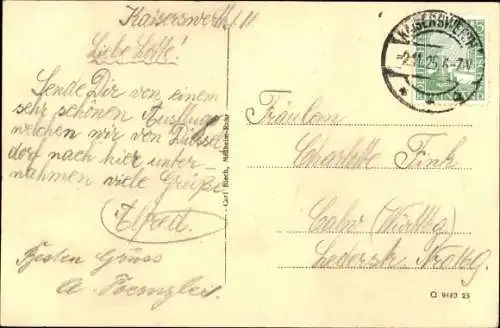 Kaiserswerth
Liebe Lotte!
Sende Dir von einem
sehr schönen Ausflug
welchen wir von Düssel
dorf nach hier unter-
nahmen viele Grüße
Alfred.
Besten Gruss
A.
Carl Blech, Mülheim-Ruhr
KAISERSWERTH
-2.11.25.6-7N.
Fräulein
Charlotte Fink
Calw (Württbg)
Lederstr.
Q 9483 25